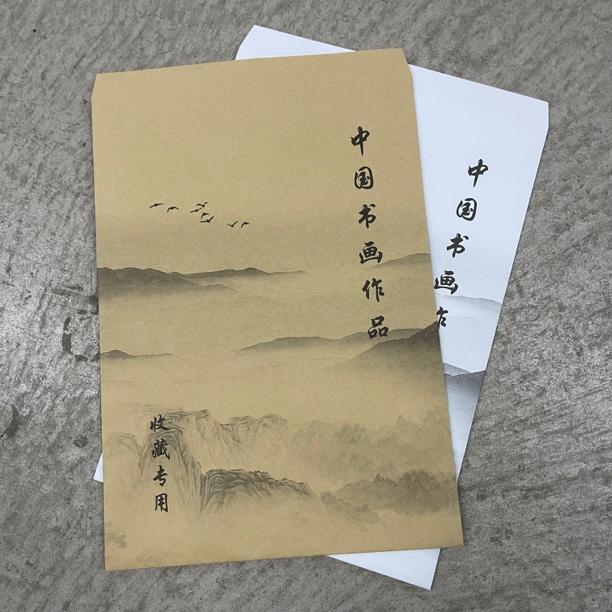 中国书画作品
收藏专用
中国书画作